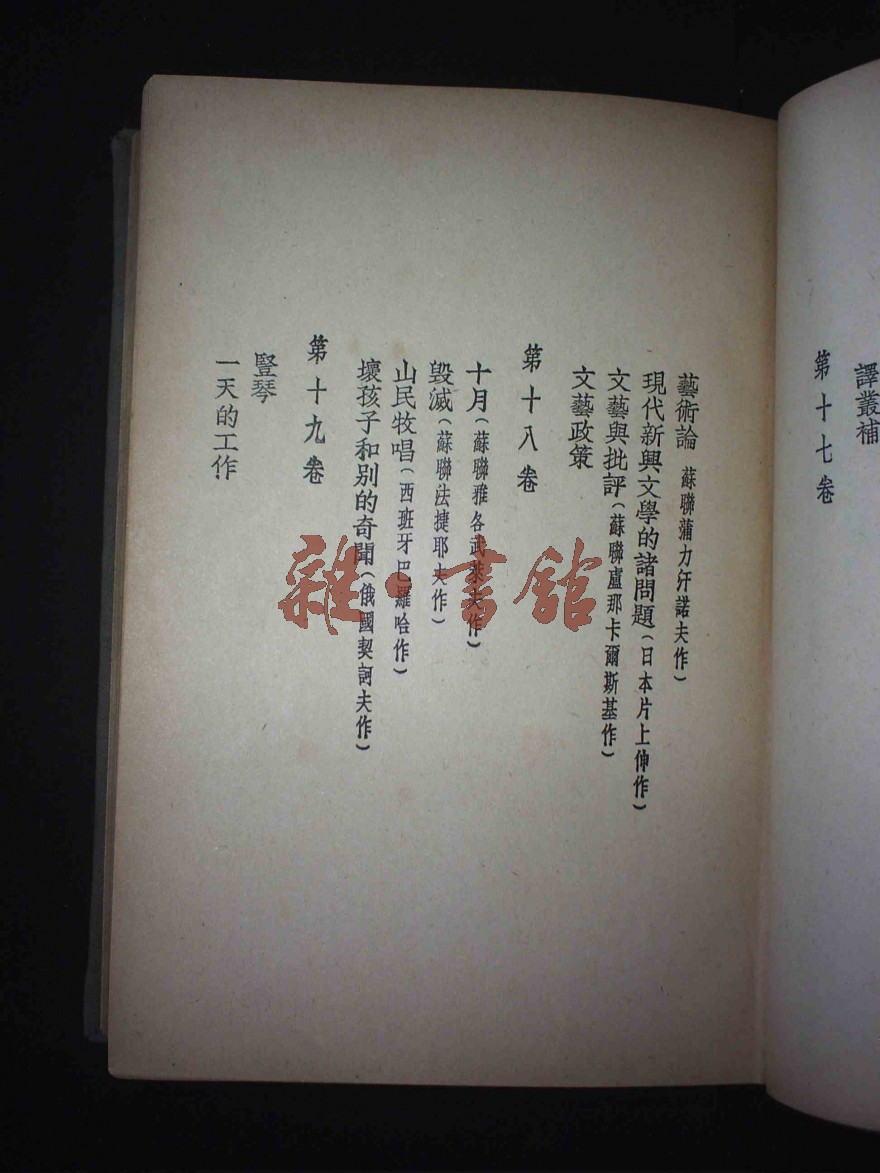 譯叢補
第十七卷
藝術論 蘇聯蒲力汗諾夫作)
現代新興文學的諸問題(日本片上伸作)
文藝與批評(蘇聯盧那卡爾斯基作)
文藝政策
第十八卷
十月(蘇聯雅各武萊夫作)
毀滅(蘇聯法捷耶夫作)
山民牧唱(西班牙巴羅哈作)
壞孩子和別的奇聞(俄國契訶夫作)
第十九卷
豎琴
一天的工作
雜·書館